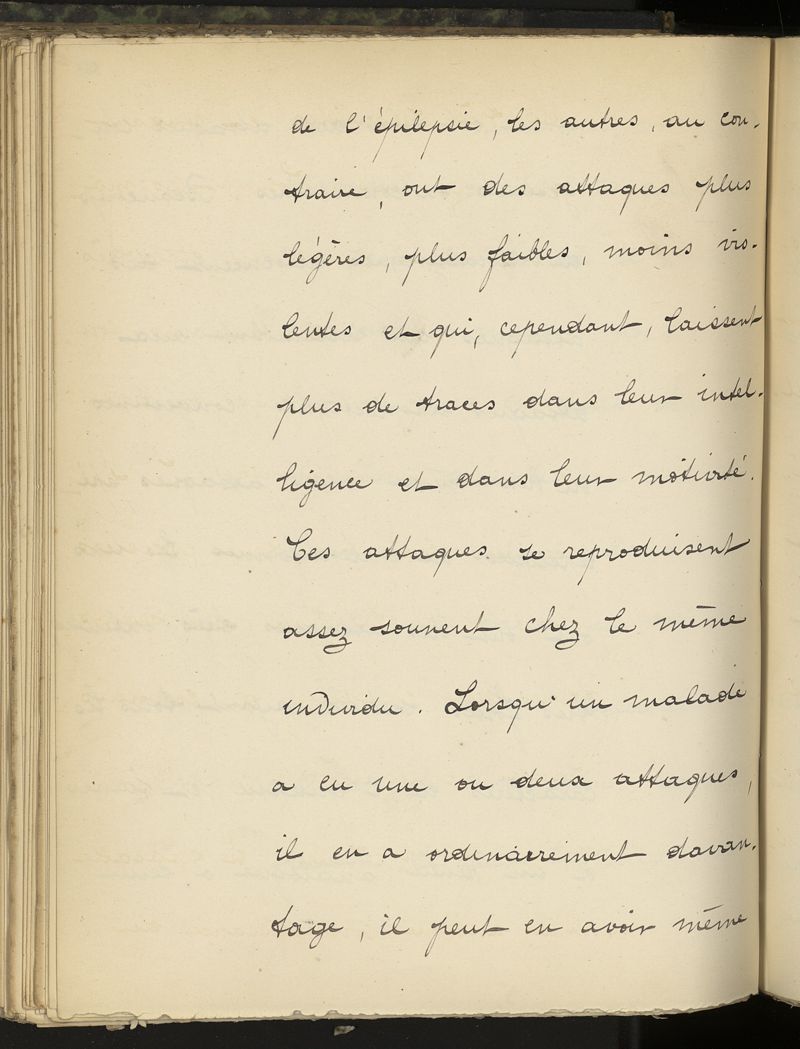 de l'épilepsie, les autres, au con-
traire, ont des attaques plus
légères, plus faibles, moins vio-
lentes et qui, cependant, laissent
plus de traces dans leur intel-
ligence et dans leur motivité.
Ces attaques se reproduisent
assez souvent chez le même
individu. Lorsqu'un malade
a eu une ou deux attaques,
il en a ordinairement davan-
tage, il peut en avoir même